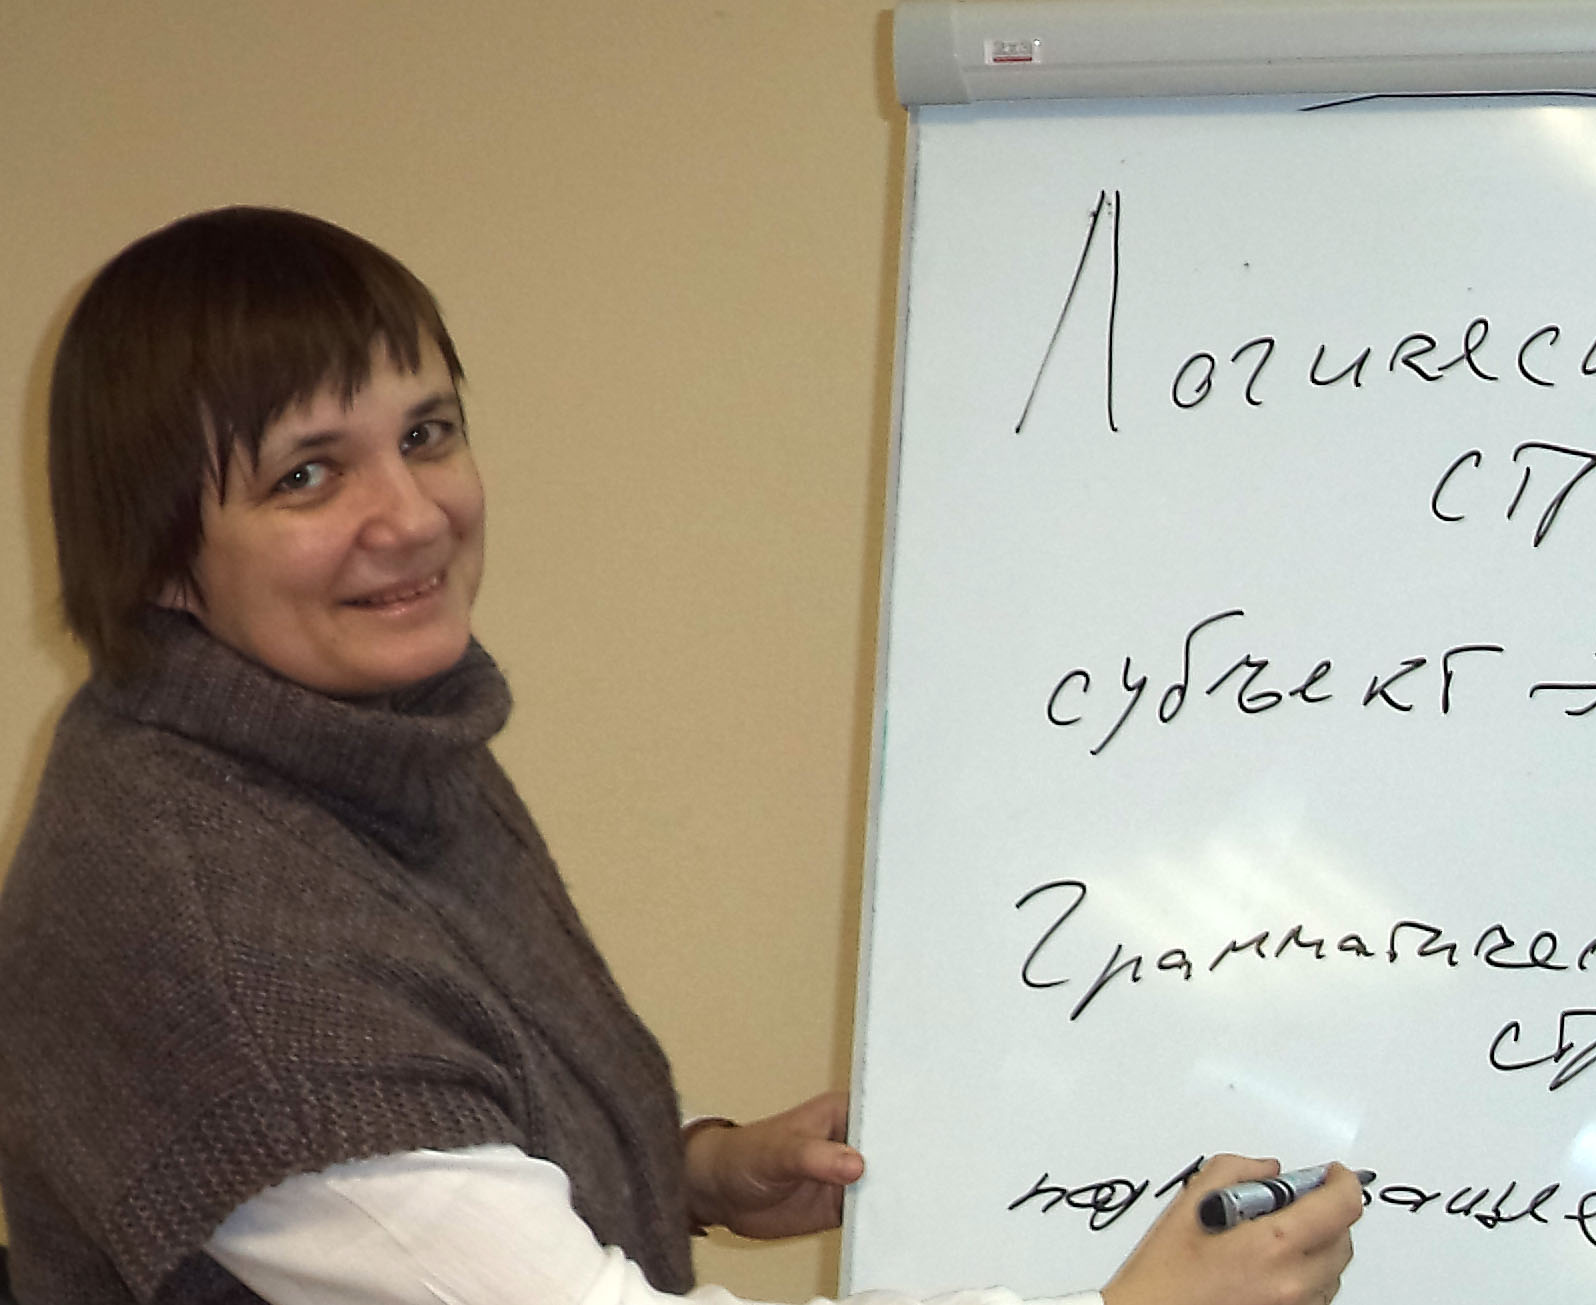 Логичес
ст
субъект →
Грамматичес
ст